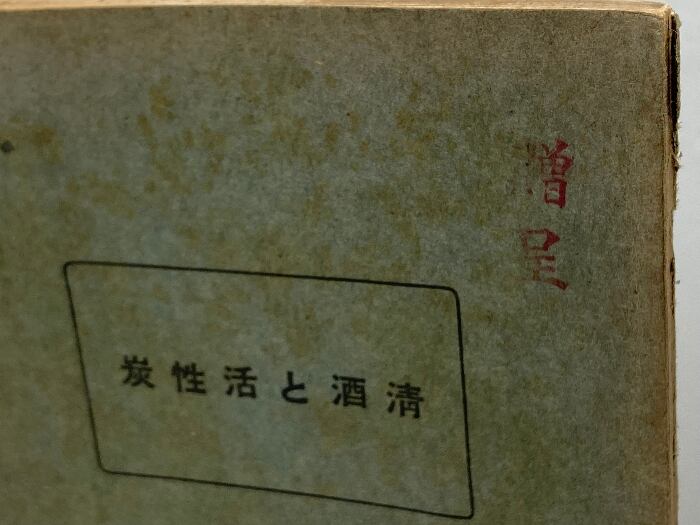 贈呈
清酒と活性炭